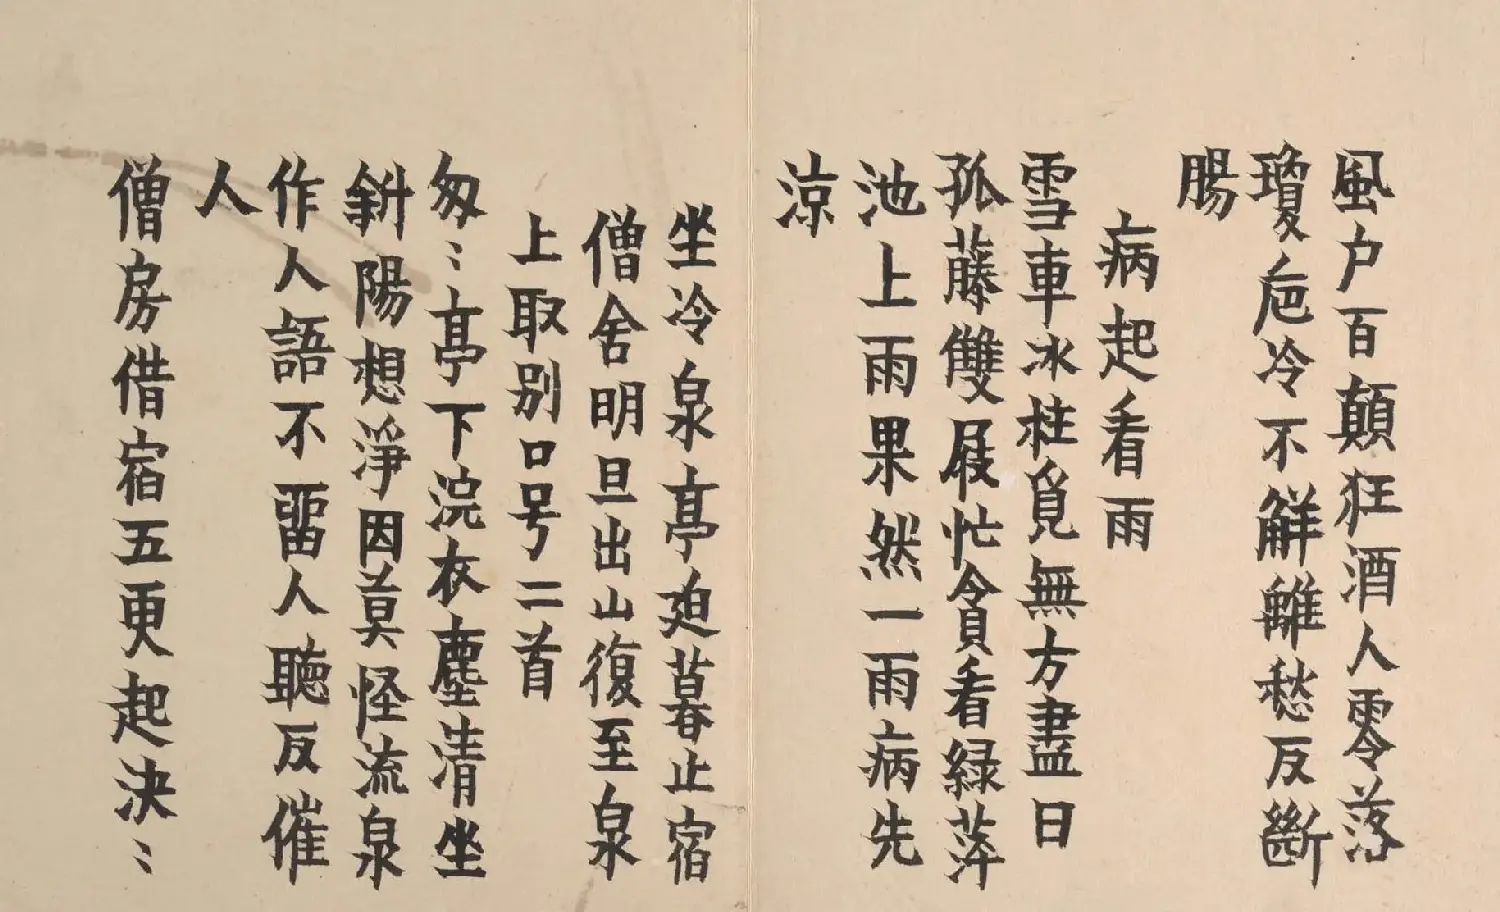 風户百顛狂酒人零落
瓊卮冷不解離愁反斷
腸
病起看雨
雪車冰柱覓無方盡日
孤藤雙屐忙貪看緑萍
池上雨果然一雨病先
涼
坐冷泉亭廹暮止宿
僧舍明旦出山復至泉
上取别口号二首
匆〻亭下浣衣塵清坐
斜陽想淨因莫怪流泉
作人語不留人聽反催
人
僧房借宿五更起決〻